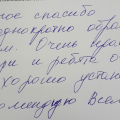 ное спасибо
днократно обра
м. Очень нрав
ди и ребята о
Хорошо устан
омендую Всем